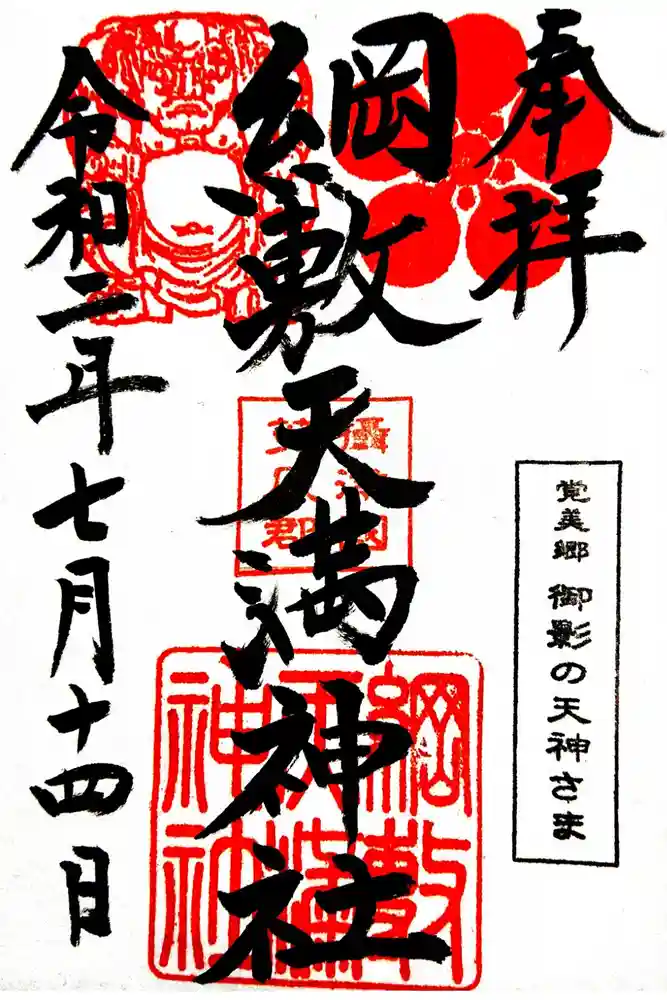 奉拝
覚美郷 御影の天神さま
綱敷天満神社
攝津国
菟原郡
綱敷
天満
神社
令和二年七月十四日